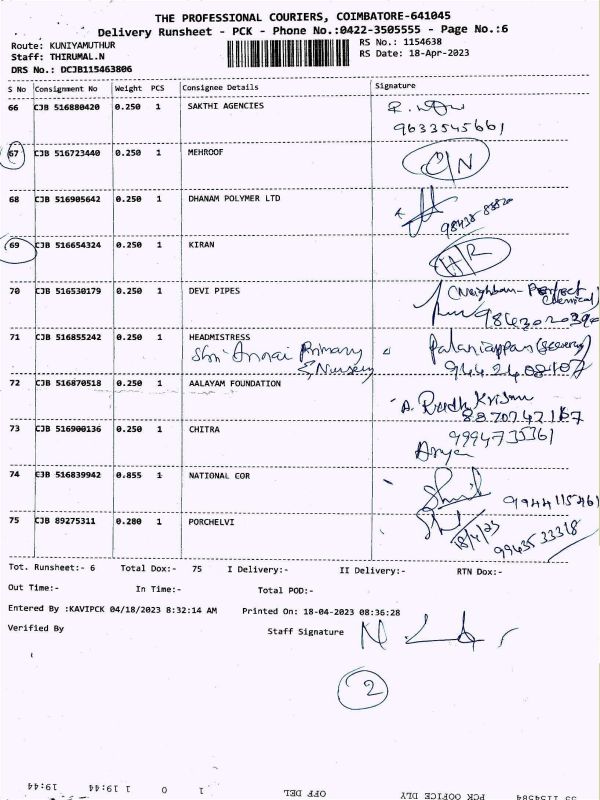 THE PROFESSIONAL COURIERS, COIMBATORE-641045
Delivery Runsheet - PCK - Phone No.:0422-3505555 - Page No.:6
Route: KUNIYAMUTHUR RS No.: 1154638
Staff: THIRUMAL.N RS Date: 18-Apr-2023
DRS No.: DCJB115463806
S No Consignment No Weight PCS Consignee Details Signature
66 CJB 516880420 0.250 1 SAKTHI AGENCIES
9633545661
67 CJB 516723440 0.250 1 MEHROOF
68 CJB 516905642 0.250 1 DHANAM POLYMER LTD
69 CJB 516654324 0.250 1 KIRAN
70 CJB 516530179 0.250 1 DEVI PIPES (Neighbour- Perfect
Chemical)
71 CJB 516855242 0.250 1 HEADMISTRESS
Shri Annai Primary
& Nursery
72 CJB 516870518 0.250 1 AALAYAM FOUNDATION
73 CJB 516900136 0.250 1 CHITRA 9994735361
74 CJB 516839942 0.855 1 NATIONAL COR
75 CJB 89275311 0.280 1 PORCHELVI
18/4/23
9943533318
Tot. Runsheet:- 6 Total Dox:- 75 I Delivery:- II Delivery:- RTN Dox:-
Out Time:- In Time:- Total POD:-
Entered By :KAVIPCK 04/18/2023 8:32:14 AM Printed On: 18-04-2023 08:36:28
Verified By Staff Signature
2